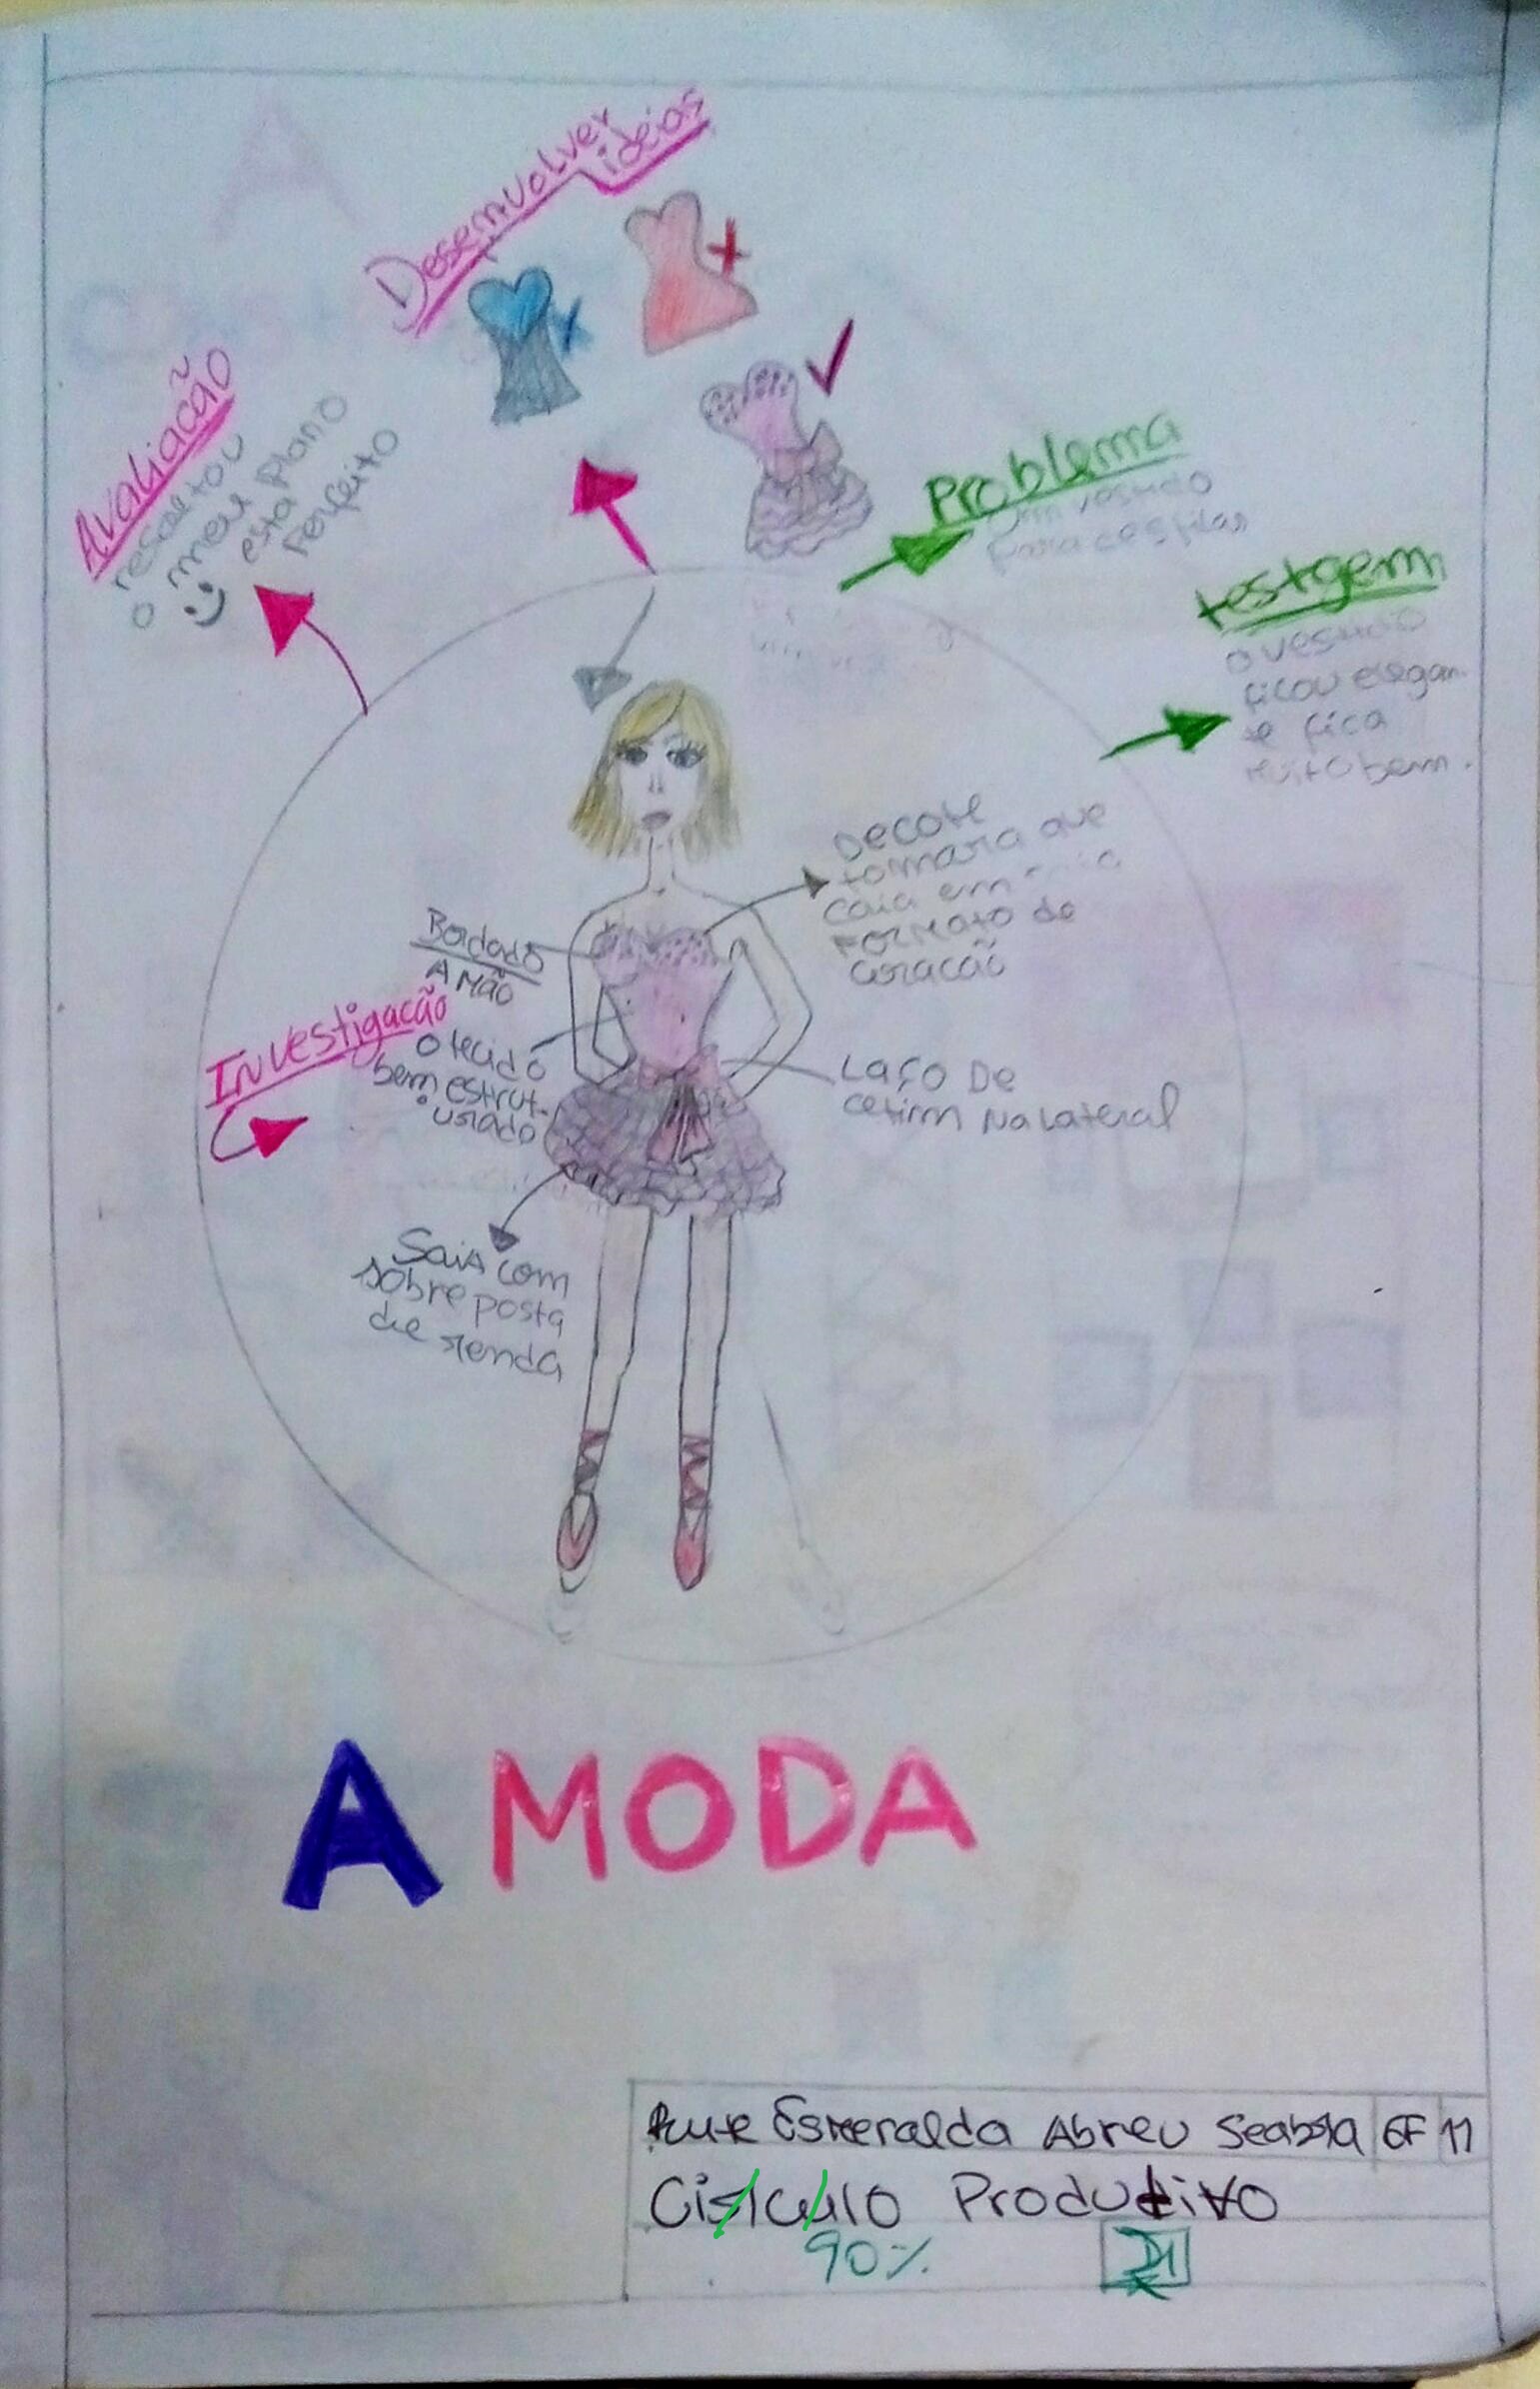 Desemvolver
ideias
Avaliacão
resoltou
o meu plano
esta
Perfeito
Problema
um vestido
para desfilar
testgem
o vestido
ficou elegan
te fica
muito bem.
Decote
tomara que
caia em
Formato de
coracão
Bordado
A Mão
Investigacão
o tecido
bem estrut-
urado
Laço De
cetim Na Lateral
Saia com
sobre posta
de renda
A MODA
Rute Esmeralda Abreu Seabra 6F 11
Cisrculo Produtivo
90%